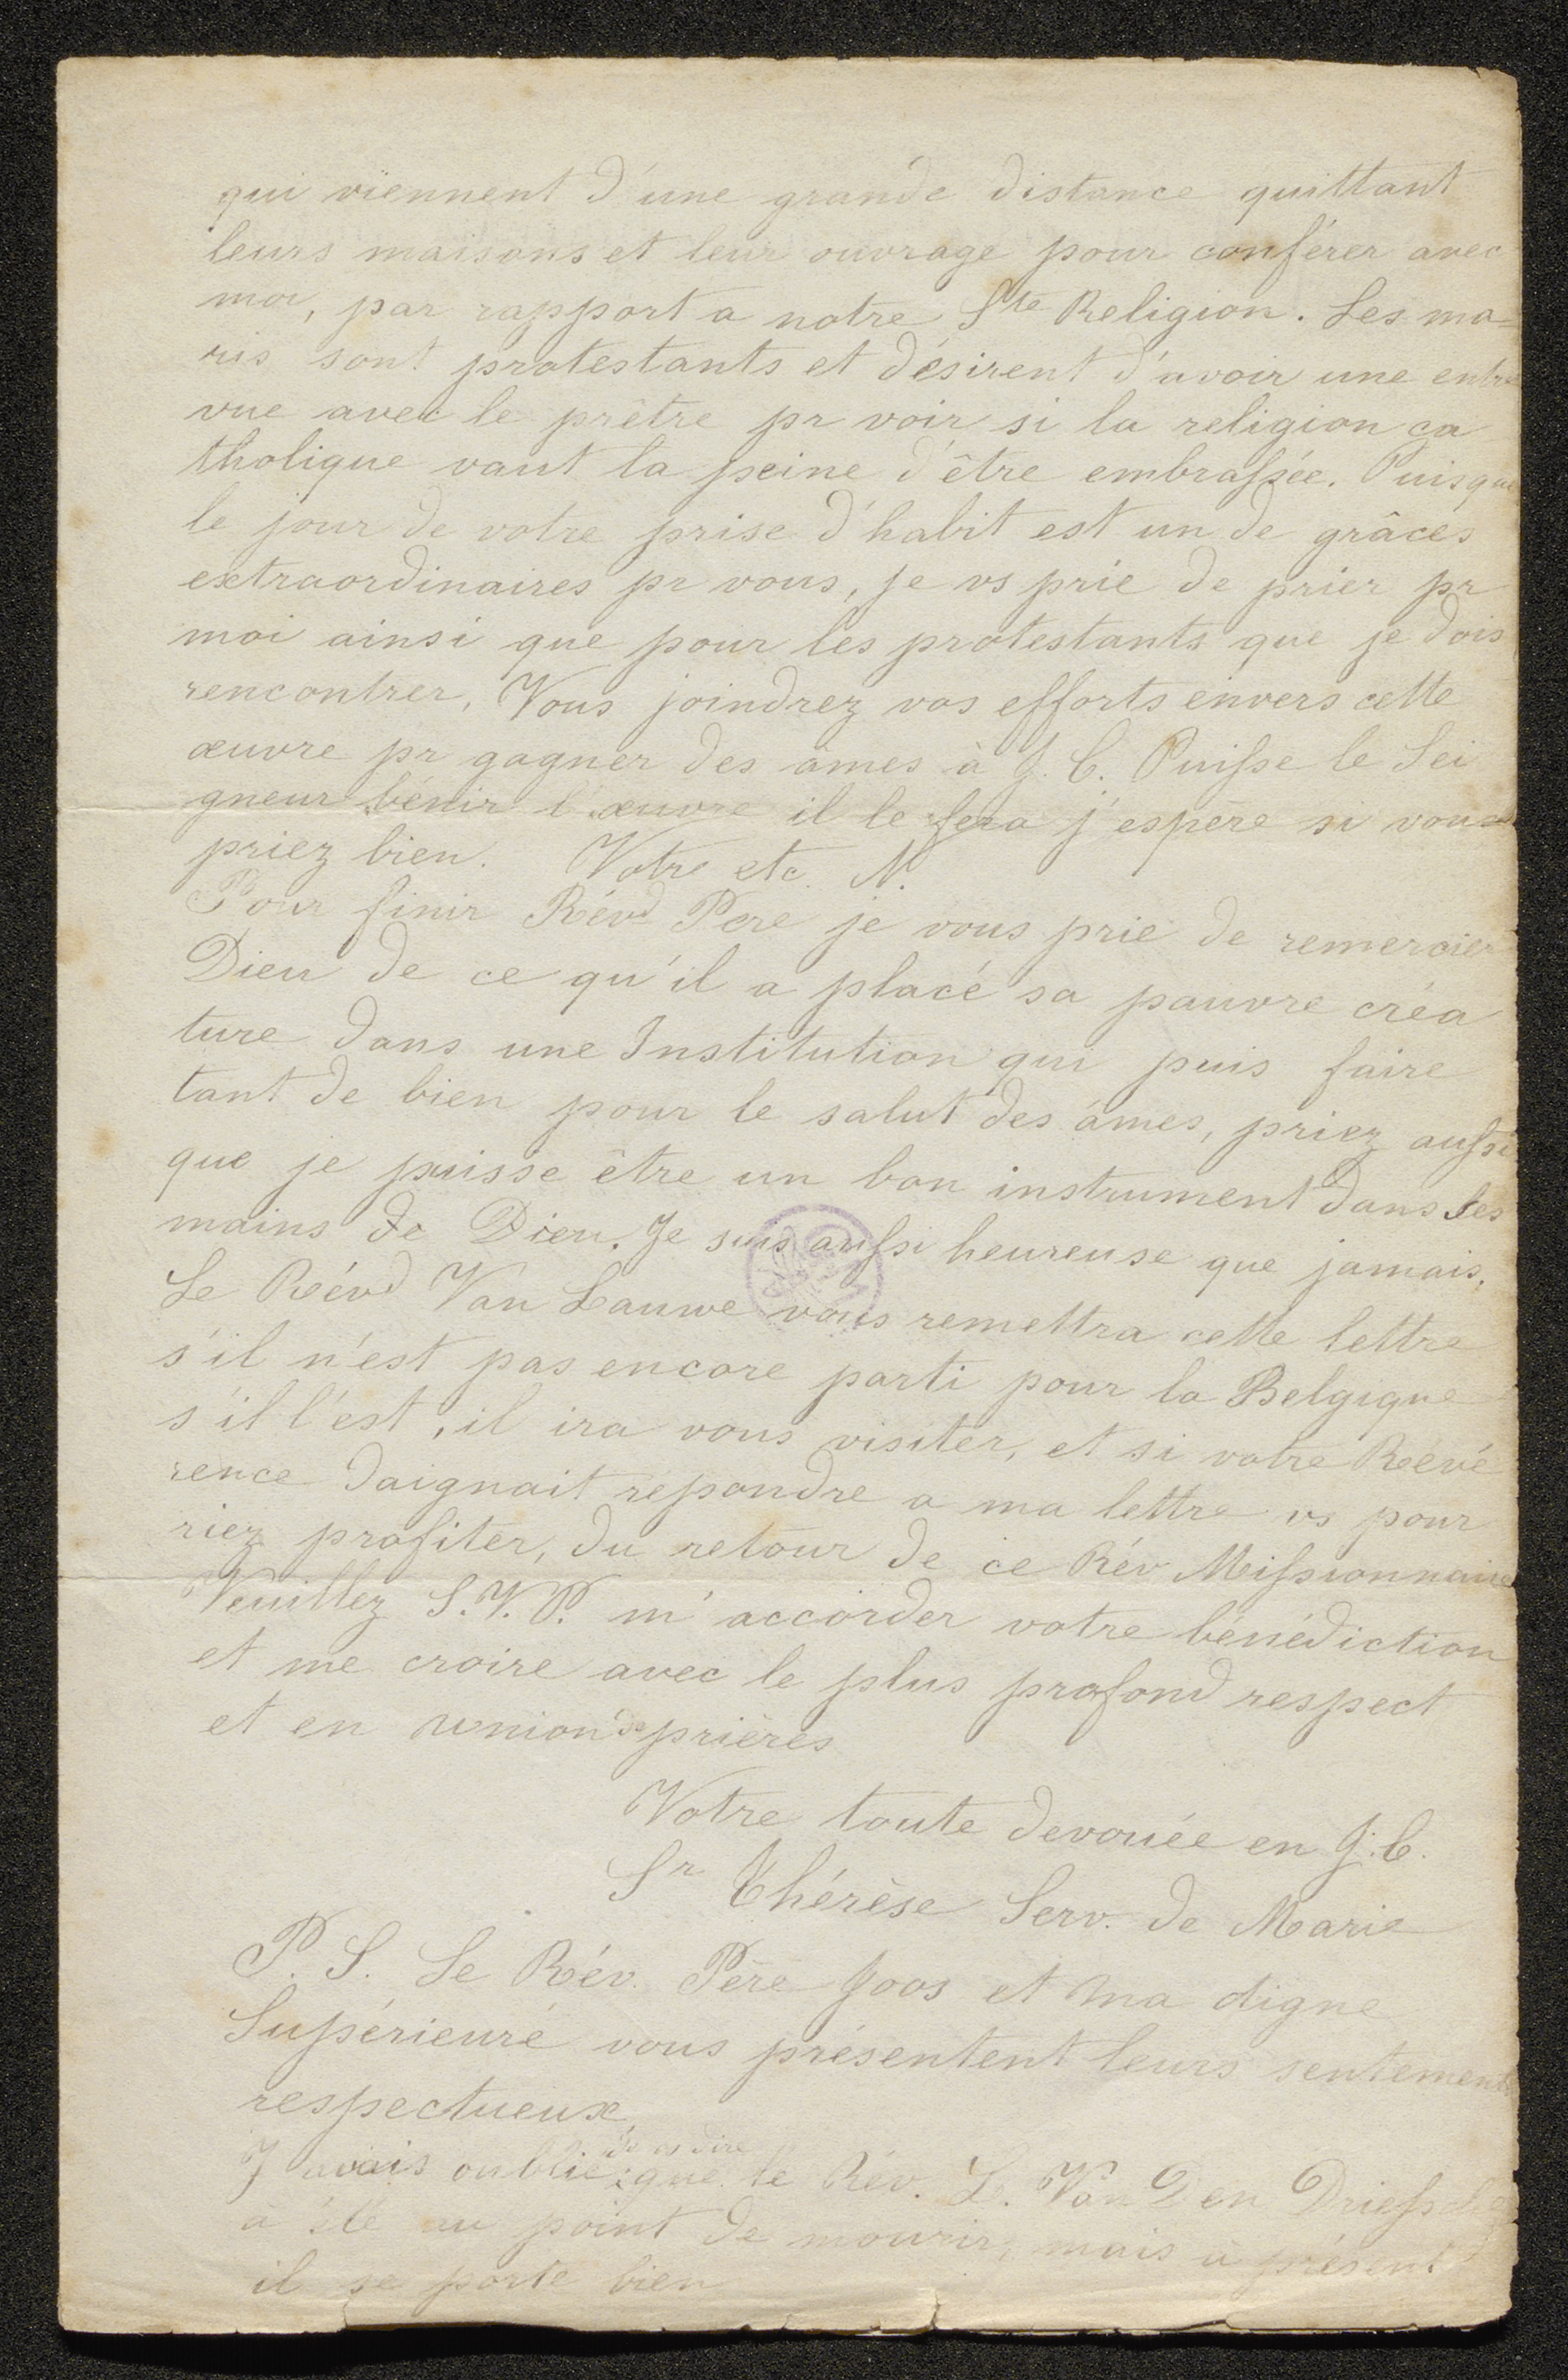 qui viennent d'une grande distance quittant
leurs maisons et leur ouvrage pour conférer avec
moi, par rapport a notre Ste Religion. Les ma=
ris sont protestants et désirent d'avoir une entre
vue avec le prêtre pr voir si la religion ca
tholique vaut la peine d'être embrassée. Puisque
le jour de votre prise d'habit est un de grâces
extraordinaires pr vous, je vs prie de prier pr
moi ainsi que pour les protestants que je dois
rencontrer, Vous joindrez vos efforts envers cette
œuvre pr gagner des âmes à J. C. Puisse le Sei
gneur bénir l'œuvre il le fera j'espère si vous
priez bien. Votre etc. N.
Pour finir Révd Pere je vous prie de remercier
Dieu de ce qu'il a placé sa pauvre créa
ture dans une Institution qui puis faire
tant de bien pour le salut des âmes, priez aussi
que je puisse être un bon instrument dans les
mains de Dieu. Je suis aussi heureuse que jamais.
Le Révd Van Lauwe vous remettra cette lettre
s'il n'est pas encore parti pour la Belgique
s'il l'est, il ira vous visiter, et si votre Révé
rence daignait repondre a ma lettre vs pour
riez profiter, du retour de ce Rév Missionnaire
Veuillez S.V.P. m'accorder votre bénédiction
et me croire avec le plus profond respect
et en union de prières
Votre toute devouée en J.C.
Sr Thérèse Serv. de Marie
P. S. Le Rév. Père Joos et ma digne
Supérieure vous présentent leurs sentements
respectueux
J'avais oublié de vs dire que le Rév. L. Van Den Driessche
a été au point de mourir, mais à présent
il se porte bien